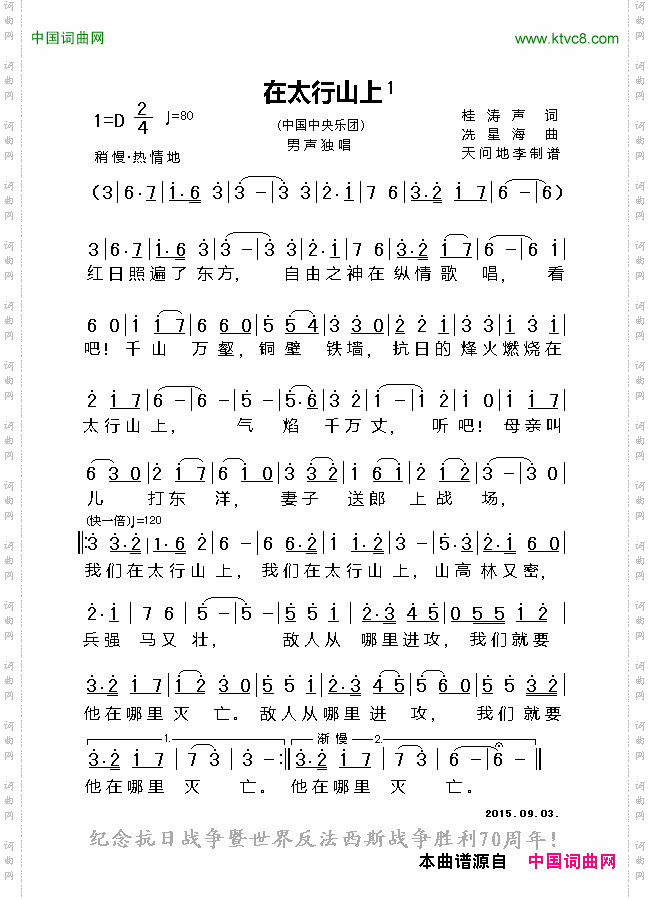 中国词曲网 www.ktvc8.com
在太行山上1
1=D 2/4 ♩=80
(中国中央乐团)
男声独唱
稍慢·热情地
桂涛声 词
冼星海 曲
天问地李制谱
(3|6·7|i·6 3|3 -|3 3|2·i|7 6|3·2 i 7|6 -|6)
3|6·7|i·6 3|3 -|3 3|2·i|7 6|3·2 i 7|6 -|6
红日照遍了东方， 自由之神在纵情歌 唱， 看
6 0|i i 7|6 6 0|5 5 4|3 3 0|2 2 i|3 3|i 3 3
吧！千山 万壑，铜壁 铁墙，抗日的烽火燃烧在
2 i 7|6 -|6 -|5 -|5·6|3 2|1 -|1 2|i 0|i i 7
太行山上， 气 焰 千万丈， 听吧！母亲叫
6 3 0|2 i 7|6 i 0|3 3 2|i 6 i|2 i 2|3 -|3 0
儿 打东 洋， 妻子 送郎 上战 场，
(快一倍)♩=120
‖:3 3·2|1·6 2|6 -|6 6·2|i i·2|3 -|5·3|2·i 6 0|
我们在太行山上，我们在太行山上，山高林又密，
2·i|7 6|5 -|5 -|5 5 i|2·3 4 5|0 5 5 i 2|
兵强 马又 壮， 敌人从 哪里进攻，我们就要
3·2 i 7|i 2 3 0|5 5 i|2·3 4 5|5 0|5 5 3 2|
他在哪里灭 亡。敌人从哪里进 攻， 我们就要
1. 渐慢 2.
3·2 i 7|7 3|3 -:‖3·2 i 7|7 3|6 -|6 -‖
他在哪里 灭 亡。他在哪里 灭 亡。
2015.09.03.
纪念抗日战争暨世界反法西斯战争胜利70周年！
本曲谱源自 中国词曲网